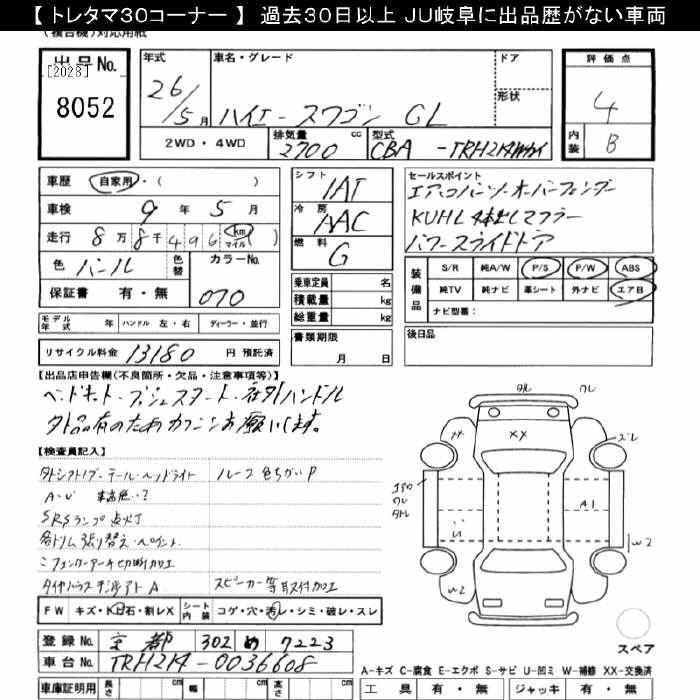 【 トレタマ３０コーナー 】 過去３０日以上 ＪＵ岐阜に出品歴がない車両
(複合機)対応用紙
出品No.
[2028]
8052
年式
26/5月
車名・グレード
ハイエースワゴン GL
ドア
形状
2WD・4WD
排気量 cc
2700
型式
CBA -TRH214W
評価点
4
内装 B
車歴 自家用・( )
車検 9年 5月
走行 8万8千496 (km マイル)
色 パール 色替
カラーNo. 070
保証書 有・無
シフト IAT
冷房 AAC
燃料 G
乗車定員 名
積載量 kg
総重量 kg
書類期限
月 日
セールスポイント
エアロバンパー・オーバーフェンダー
KUHL 4本出しマフラー
パワースライドドア
装備品
S/R 純A/W P/S P/W ABS
純TV 純ナビ 革シート 外ナビ エアB
ナビ型番：
後日品
モデル年式 年 ハンドル 左・右 ディーラー・並行
リサイクル料金 13180 円 預託済
【出品店申告欄(不良箇所・欠品・注意事項等)】
ベッドキット・プッシュスタート・社外ハンドル
外品有のため現状カクニンお願いします。
【検査員記入】
外シフトノブ・テール・ヘッドライト
ルーフ色ちがいP
A・U 車高低い?
SRSランプ点灯
各トリム張り替え・ペイント
ミフェンダーアーチ切断加工
タイヤハウス干渉アト A
スピーカー等取付加工
FW キズ・トビ石・割レX
シート内装 コゲ・穴・汚レ・シミ・破レ・スレ
登録No. 京都 302 め 7223
車台No. TRH214-0036608
車庫証明用 長さ cm 幅 cm 高さ cm
タレ ワレ
XX
ズレ
エアロ
ワレ
タレ
A1
W2
W2
スペア
A-キズ C-腐食 E-エクボ S-サビ U-凹ミ W-補修 XX-交換済
工具 有・無 ジャッキ 有・無